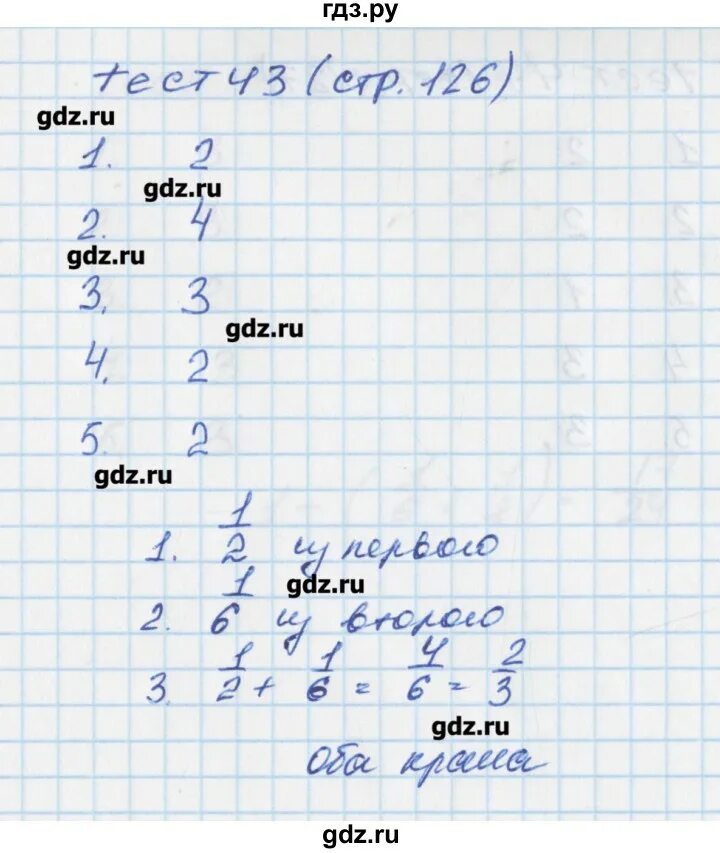 гдз.ру
тест 43 (стр. 126)
gdz.ru
1. 2
gdz.ru
2. 4
gdz.ru
3. 3
gdz.ru
4. 2
5. 2
gdz.ru
1. 1/2 из первого
gdz.ru
2. 1/6 из второго
3. 1/2 + 1/6 = 4/6 = 2/3
gdz.ru
оба крана
gdz.ru